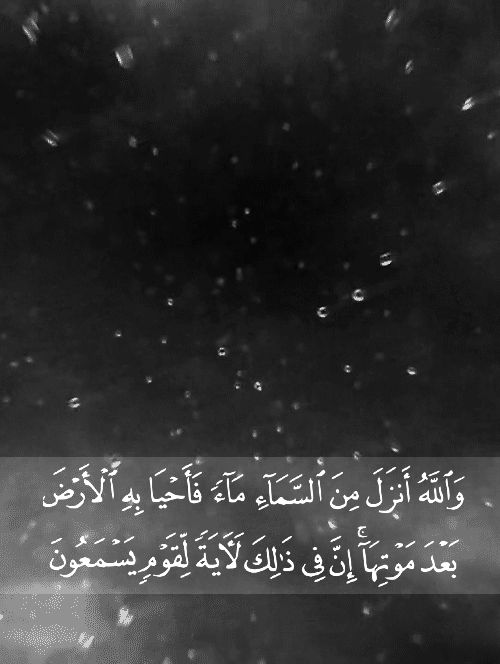 وَٱللَّهُ أَنزَلَ مِنَ ٱلسَّمَآءِ مَآءً فَأَحْيَا بِهِ ٱلْأَرْضَ
بَعْدَ مَوْتِهَآ ۚ إِنَّ فِى ذَٰلِكَ لَـَٔايَةً لِّقَوْمٍ يَسْمَعُونَ